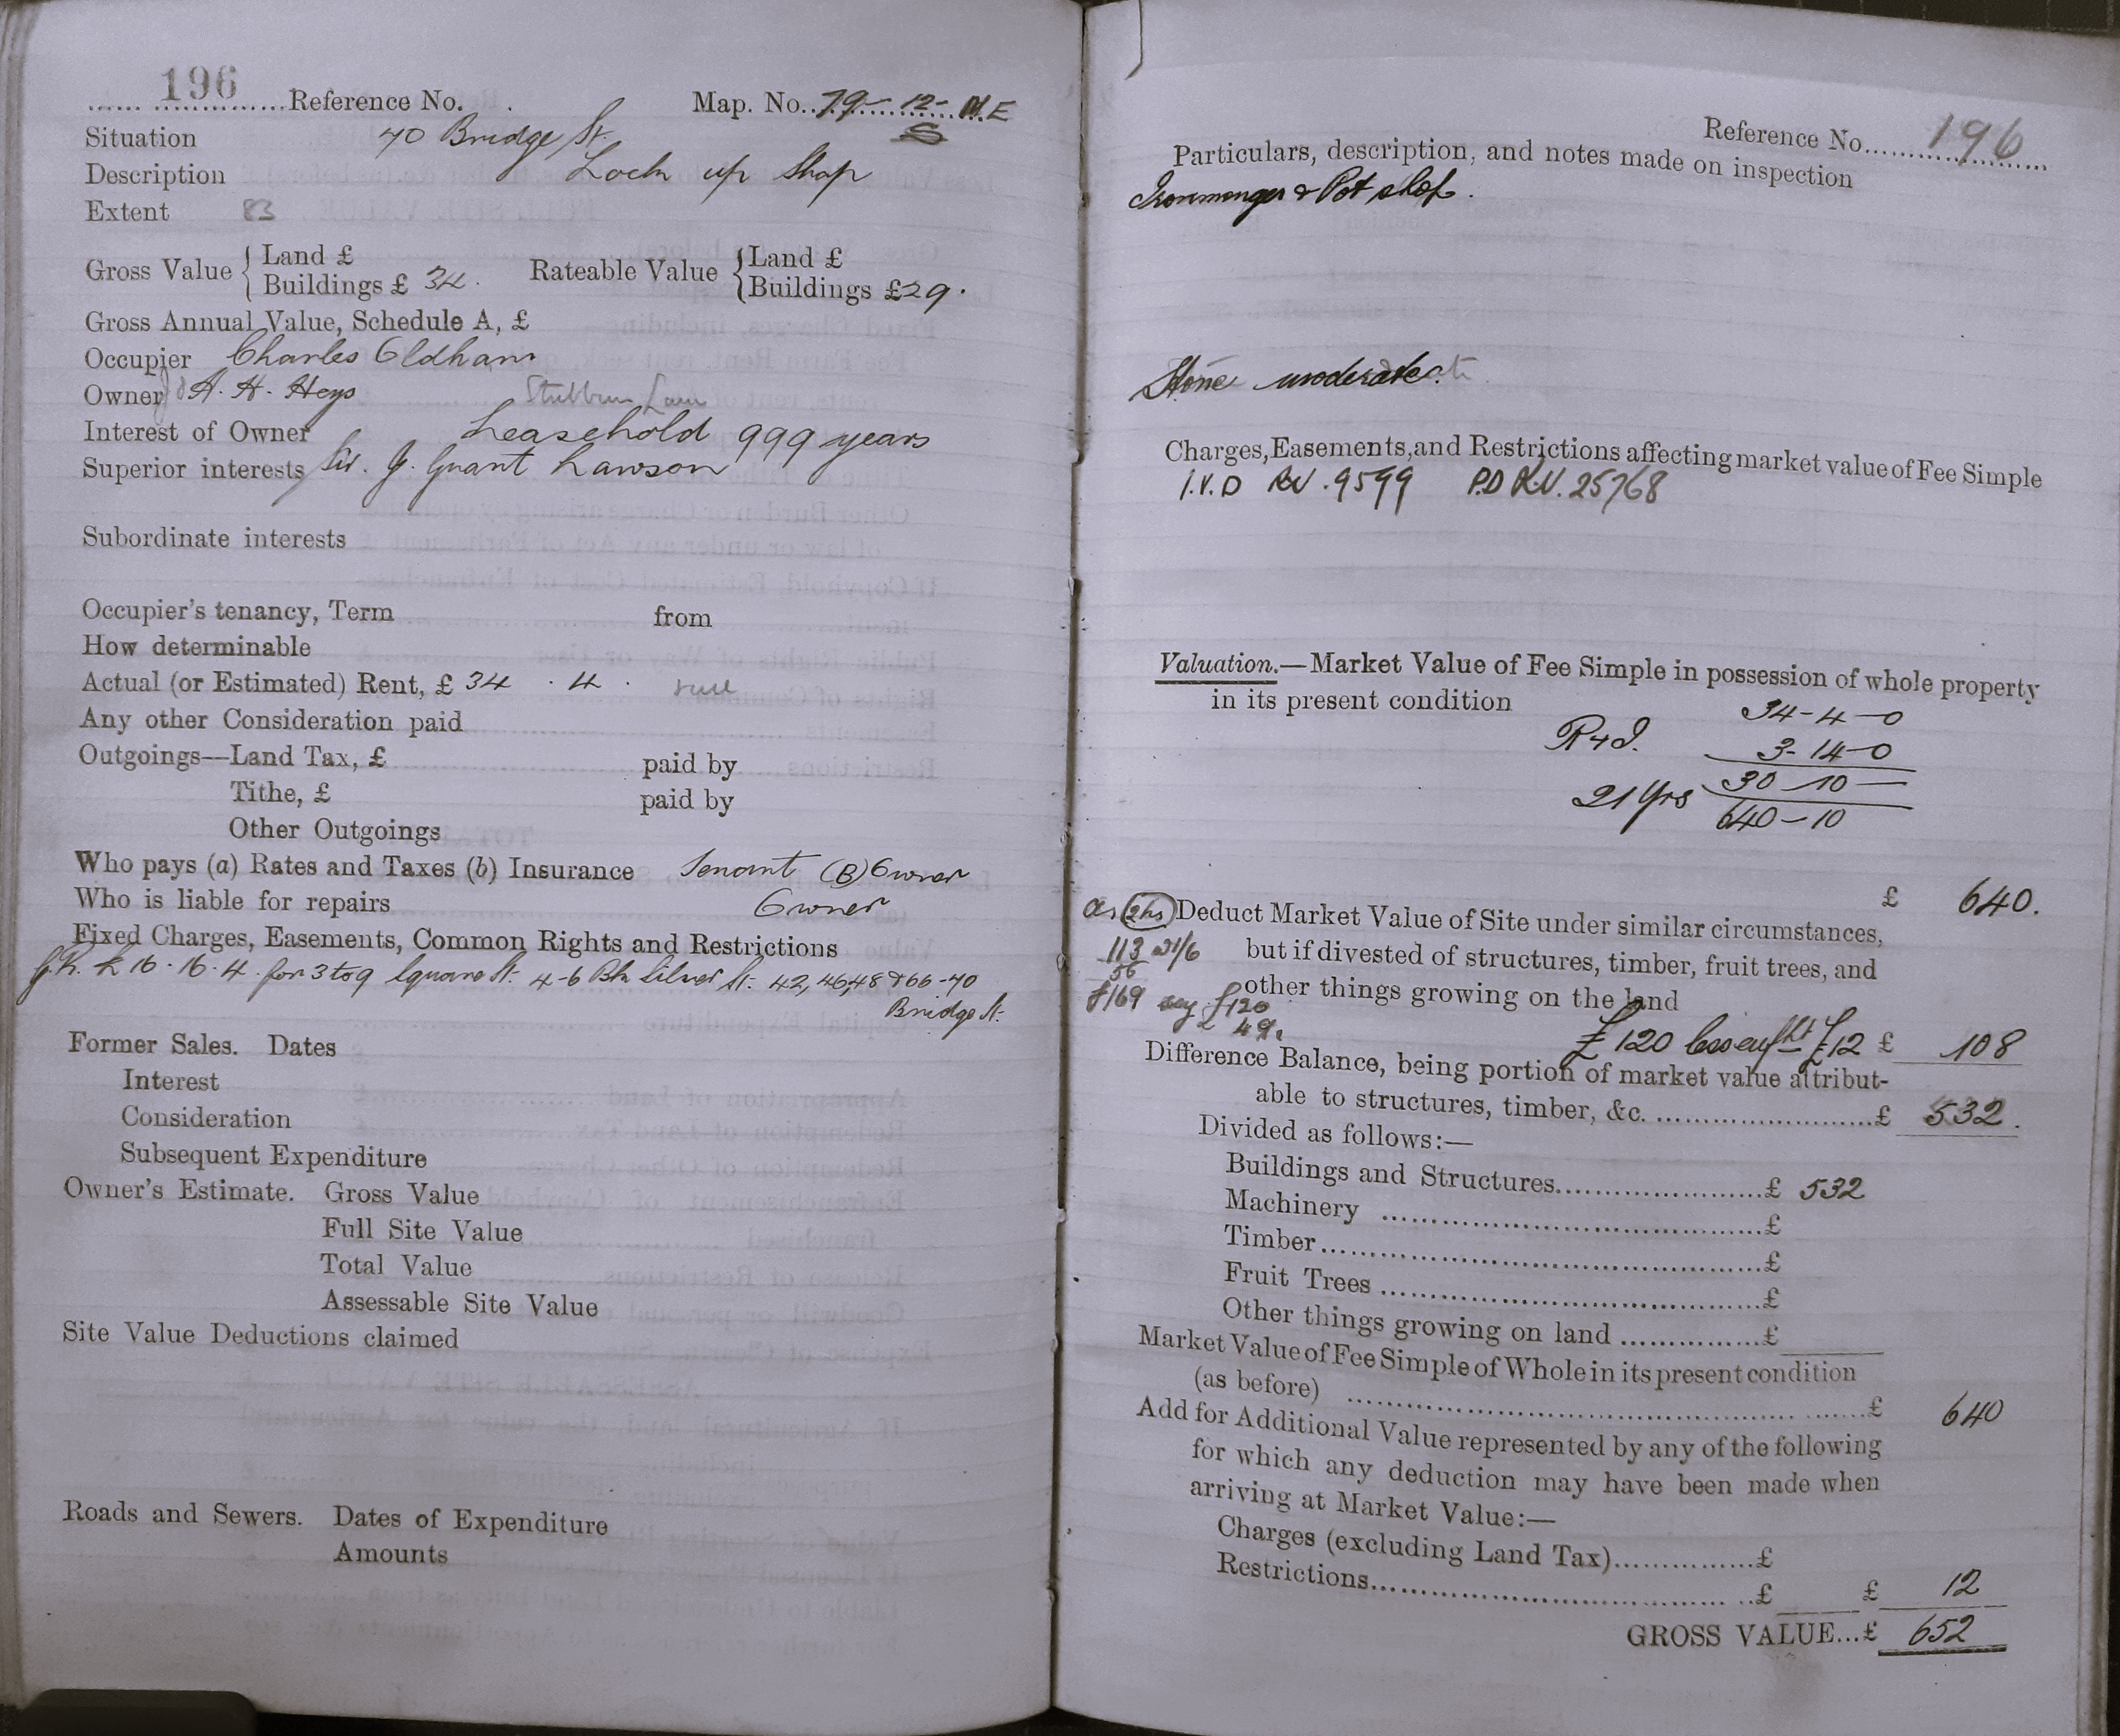 196 Reference No. Map. No. 79-12-N.E
S
Situation 70 Bridge St.
Description Lock up Shop
Extent 83
Gross Value { Land £ Rateable Value { Land £
Buildings £ 34. Buildings £29.
Gross Annual Value, Schedule A, £
Occupier Charles Oldham
Owner A. H. Heys
Interest of Owner Leasehold 999 years
Superior interests Sir. J. Grant Lawson
Subordinate interests
Occupier's tenancy, Term from
How determinable
Actual (or Estimated) Rent, £ 34 . 4 .
Any other Consideration paid
Outgoings—Land Tax, £ paid by
Tithe, £ paid by
Other Outgoings
Who pays (a) Rates and Taxes (b) Insurance Tenant (B) Owner
Who is liable for repairs Owner
Fixed Charges, Easements, Common Rights and Restrictions
G.R. £ 16 . 16 . 4 . for 3 to 9 Square St. 4-6 Bk Silver St. 42, 46, 48 & 66-70
Bridge St.
Former Sales. Dates
Interest
Consideration
Subsequent Expenditure
Owner's Estimate. Gross Value
Full Site Value
Total Value
Assessable Site Value
Site Value Deductions claimed
Roads and Sewers. Dates of Expenditure
Amounts
Reference No. 196
Particulars, description, and notes made on inspection
Ironmonger & Pot shop.
Stone moderate.
Charges, Easements, and Restrictions affecting market value of Fee Simple
I.V.D RV. 9599 P.D R.V. 25768
Valuation.—Market Value of Fee Simple in possession of whole property
in its present condition
34-4-0
R & I. 3-14-0
30 - 10 -
21 Yrs
640-10
£ 640.
Deduct Market Value of Site under similar circumstances,
113 @ 1/6 but if divested of structures, timber, fruit trees, and
56
£169 say £120 other things growing on the land
49.
£120 less £12 £ 108
Difference Balance, being portion of market value attribut-
able to structures, timber, &c. £ 532.
Divided as follows:—
Buildings and Structures £ 532
Machinery £
Timber £
Fruit Trees £
Other things growing on land £
Market Value of Fee Simple of Whole in its present condition
(as before) £ 640
Add for Additional Value represented by any of the following
for which any deduction may have been made when
arriving at Market Value:—
Charges (excluding Land Tax) £
Restrictions £ £ 12
GROSS VALUE...£ 652